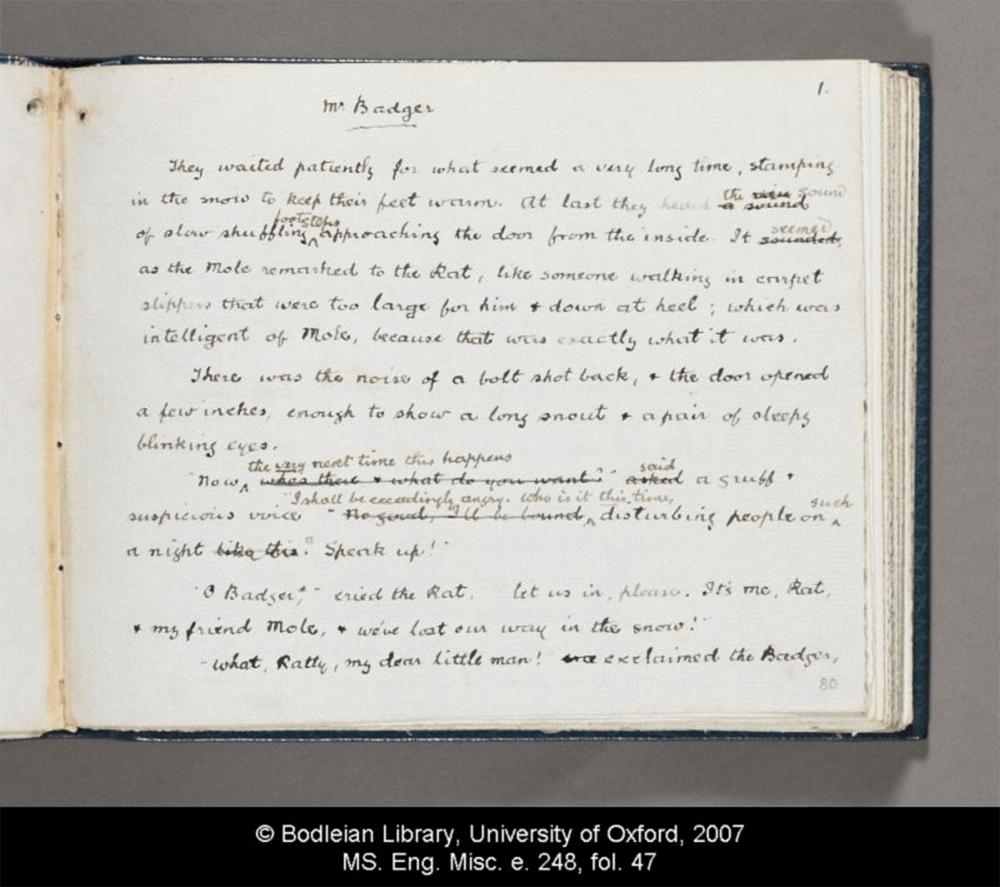 1.
Mr Badger
They waited patiently for what seemed a very long time, stamping
in the snow to keep their feet warm. At last they heard a sound the sound
of slow shuffling footsteps approaching the door from the inside. It sounded, seemed
as the Mole remarked to the Rat, like someone walking in carpet
slippers that were too large for him & down at heel; which was
intelligent of Mole, because that was exactly what it was.
There was the noise of a bolt shot back, & the door opened
a few inches, enough to show a long snout & a pair of sleepy
blinking eyes.
the very next time this happens said
"Now, who's there & what do you want?" asked a gruff &
"I shall be exceedingly angry. Who is it this time, such
suspicious voice "No good, I'll be bound, disturbing people on
a night like this? Speak up!"
"O Badger," cried the Rat, let us in, please. It's me, Rat,
& my friend Mole, & we've lost our way in the snow!"
"What, Ratty, my dear little man! exclaimed the Badger,
80
© Bodleian Library, University of Oxford, 2007
MS. Eng. Misc. e. 248, fol. 47